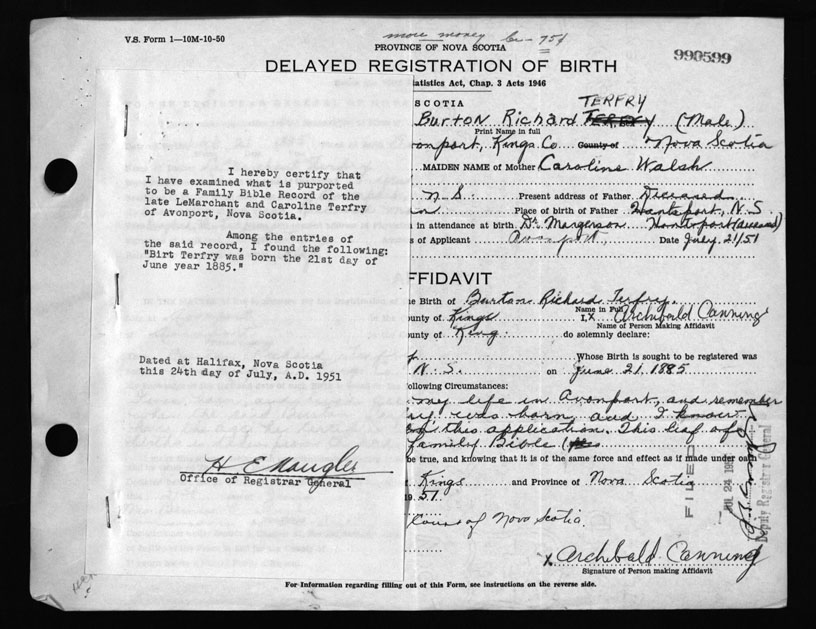 more money 75¢
V.S. Form 1—10M-10-50
PROVINCE OF NOVA SCOTIA
990599
DELAYED REGISTRATION OF BIRTH
tatistics Act, Chap. 3 Acts 1946
SCOTIA
TERFRY
Burton Richard (Male)
Print Name in full
onport, Kings Co County of Nova Scotia
MAIDEN NAME of Mother Caroline Walsh
N S. Present address of Father Deceased
Place of birth of Father Hantsport, N.S
in attendance at birth Dr Margerson Hantsport (deceased)
s of Applicant Avonport, Date July 21/51
I hereby certify that
I have examined what is purported
to be a Family Bible Record of the
late LeMarchant and Caroline Terfry
of Avonport, Nova Scotia.
Among the entries of
the said record, I found the following:
"Birt Terfry was born the 21st day of
June year 1885."
Dated at Halifax, Nova Scotia
this 24th day of July, A.D. 1951
Office of Registrar General
FFIDAVIT
e Birth of Burton Richard Terfry.
Name in Full
ounty of Kings I, x Archibald Canning
Name of Person Making Affidavit
ounty of King. do solemnly declare:
Whose Birth is sought to be registered was
N. S. on June 21. 1885
ollowing Circumstances:
my life in Avonport, and remember
ry was born and I know
this application. This leaf of
family Bible
be true, and knowing that it is of the same force and effect as if made under oath
Kings and Province of Nova Scotia
1951.
of Nova Scotia
FILED
JUL 24 195
Deputy Registrar General
x Archibald Canning
Signature of Person making Affidavit
For Information regarding filling out of this Form, see instructions on the reverse side.